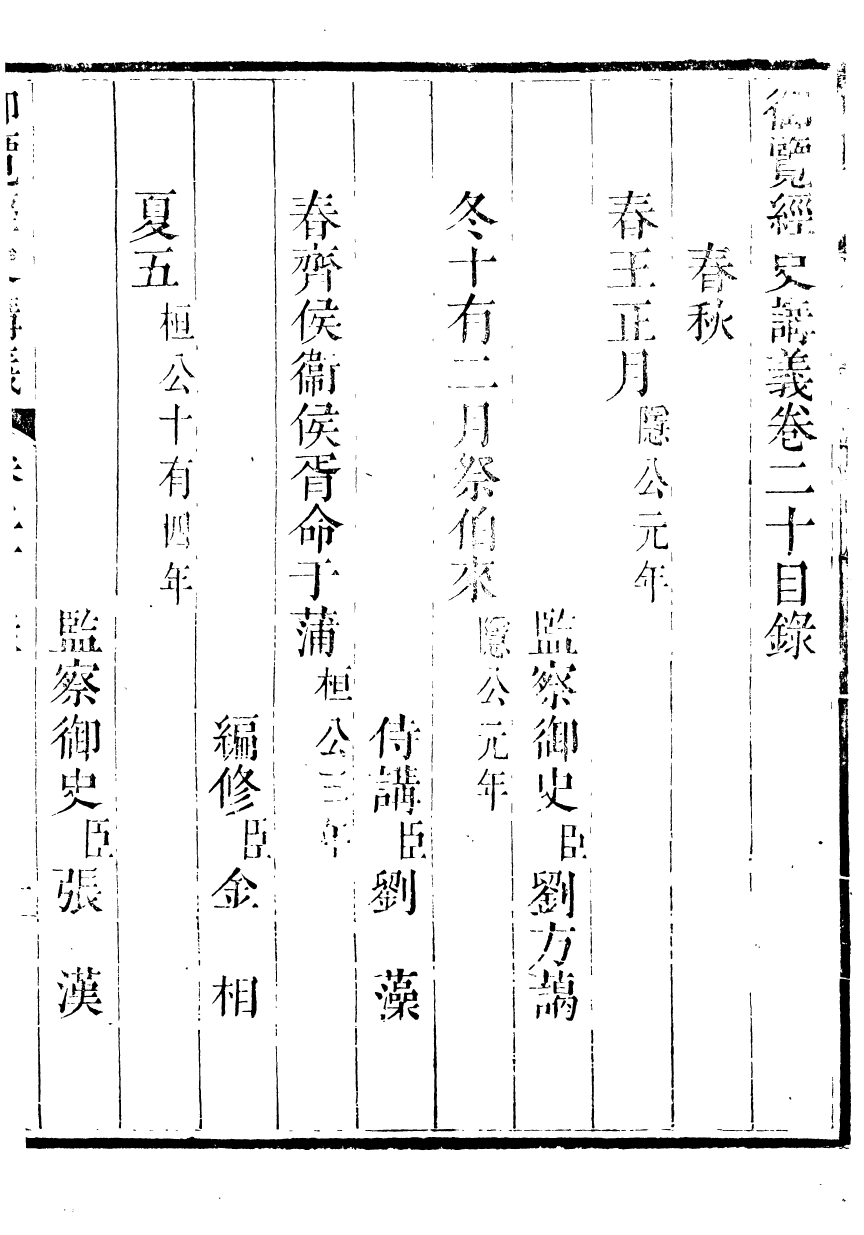 御覽經史講義卷二十目錄
春秋
春王正月隱公元年
監察御史臣劉方藹
冬十有二月祭伯來隱公元年
侍講臣劉藻
春齊侯衞侯胥命于蒲桓公三年
編修臣金相
夏五桓公十有四年
監察御史臣張漢
御覽經史講義